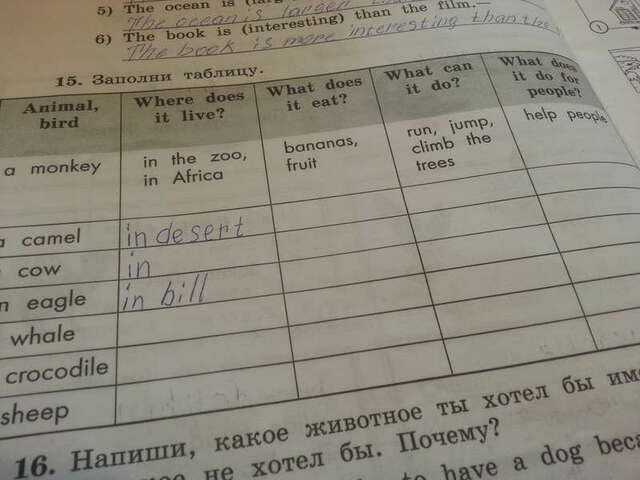 5) The ocean is (larg
The ocean is larger
6) The book is (interesting) than the film.
The book is more interesting than the
15. Заполни таблицу.
Animal, bird
Where does it live?
What does it eat?
What can it do?
What does it do for people?
a monkey
in the zoo, in Africa
bananas, fruit
run, jump, climb the trees
help people
a camel
in desert
cow
in
n eagle
in bill
whale
crocodile
sheep
16. Напиши, какое животное ты хотел бы име
не хотел бы. Почему?
to have a dog beca
1